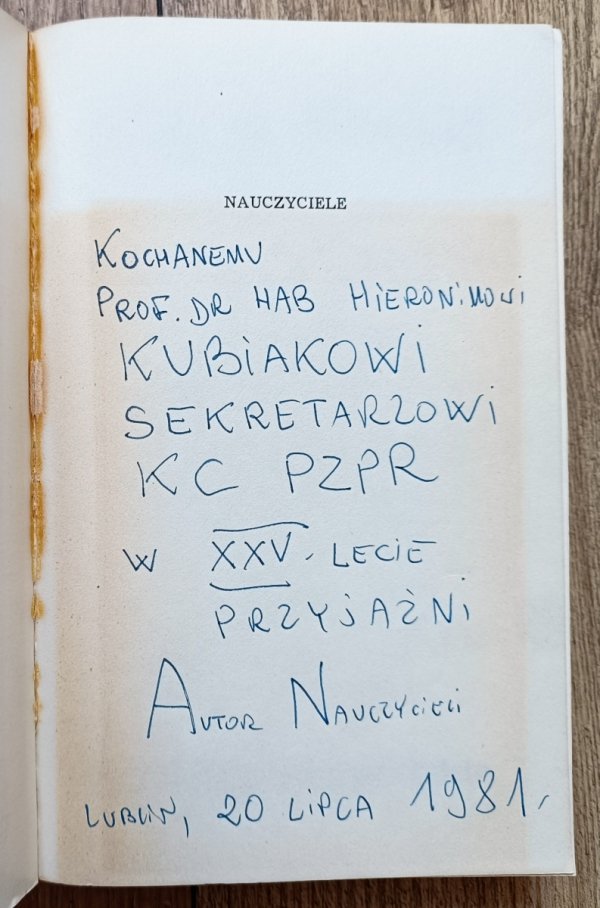 NAUCZYCIELE
KOCHANEMU
PROF. DR HAB HIERONIMOWI
KUBIAKOWI
SEKRETARZOWI
KC PZPR
W XXV-LECIE
PRZYJAŹNI
AUTOR NAUCZYCIELI
LUBLIN, 20 LIPCA 1981.